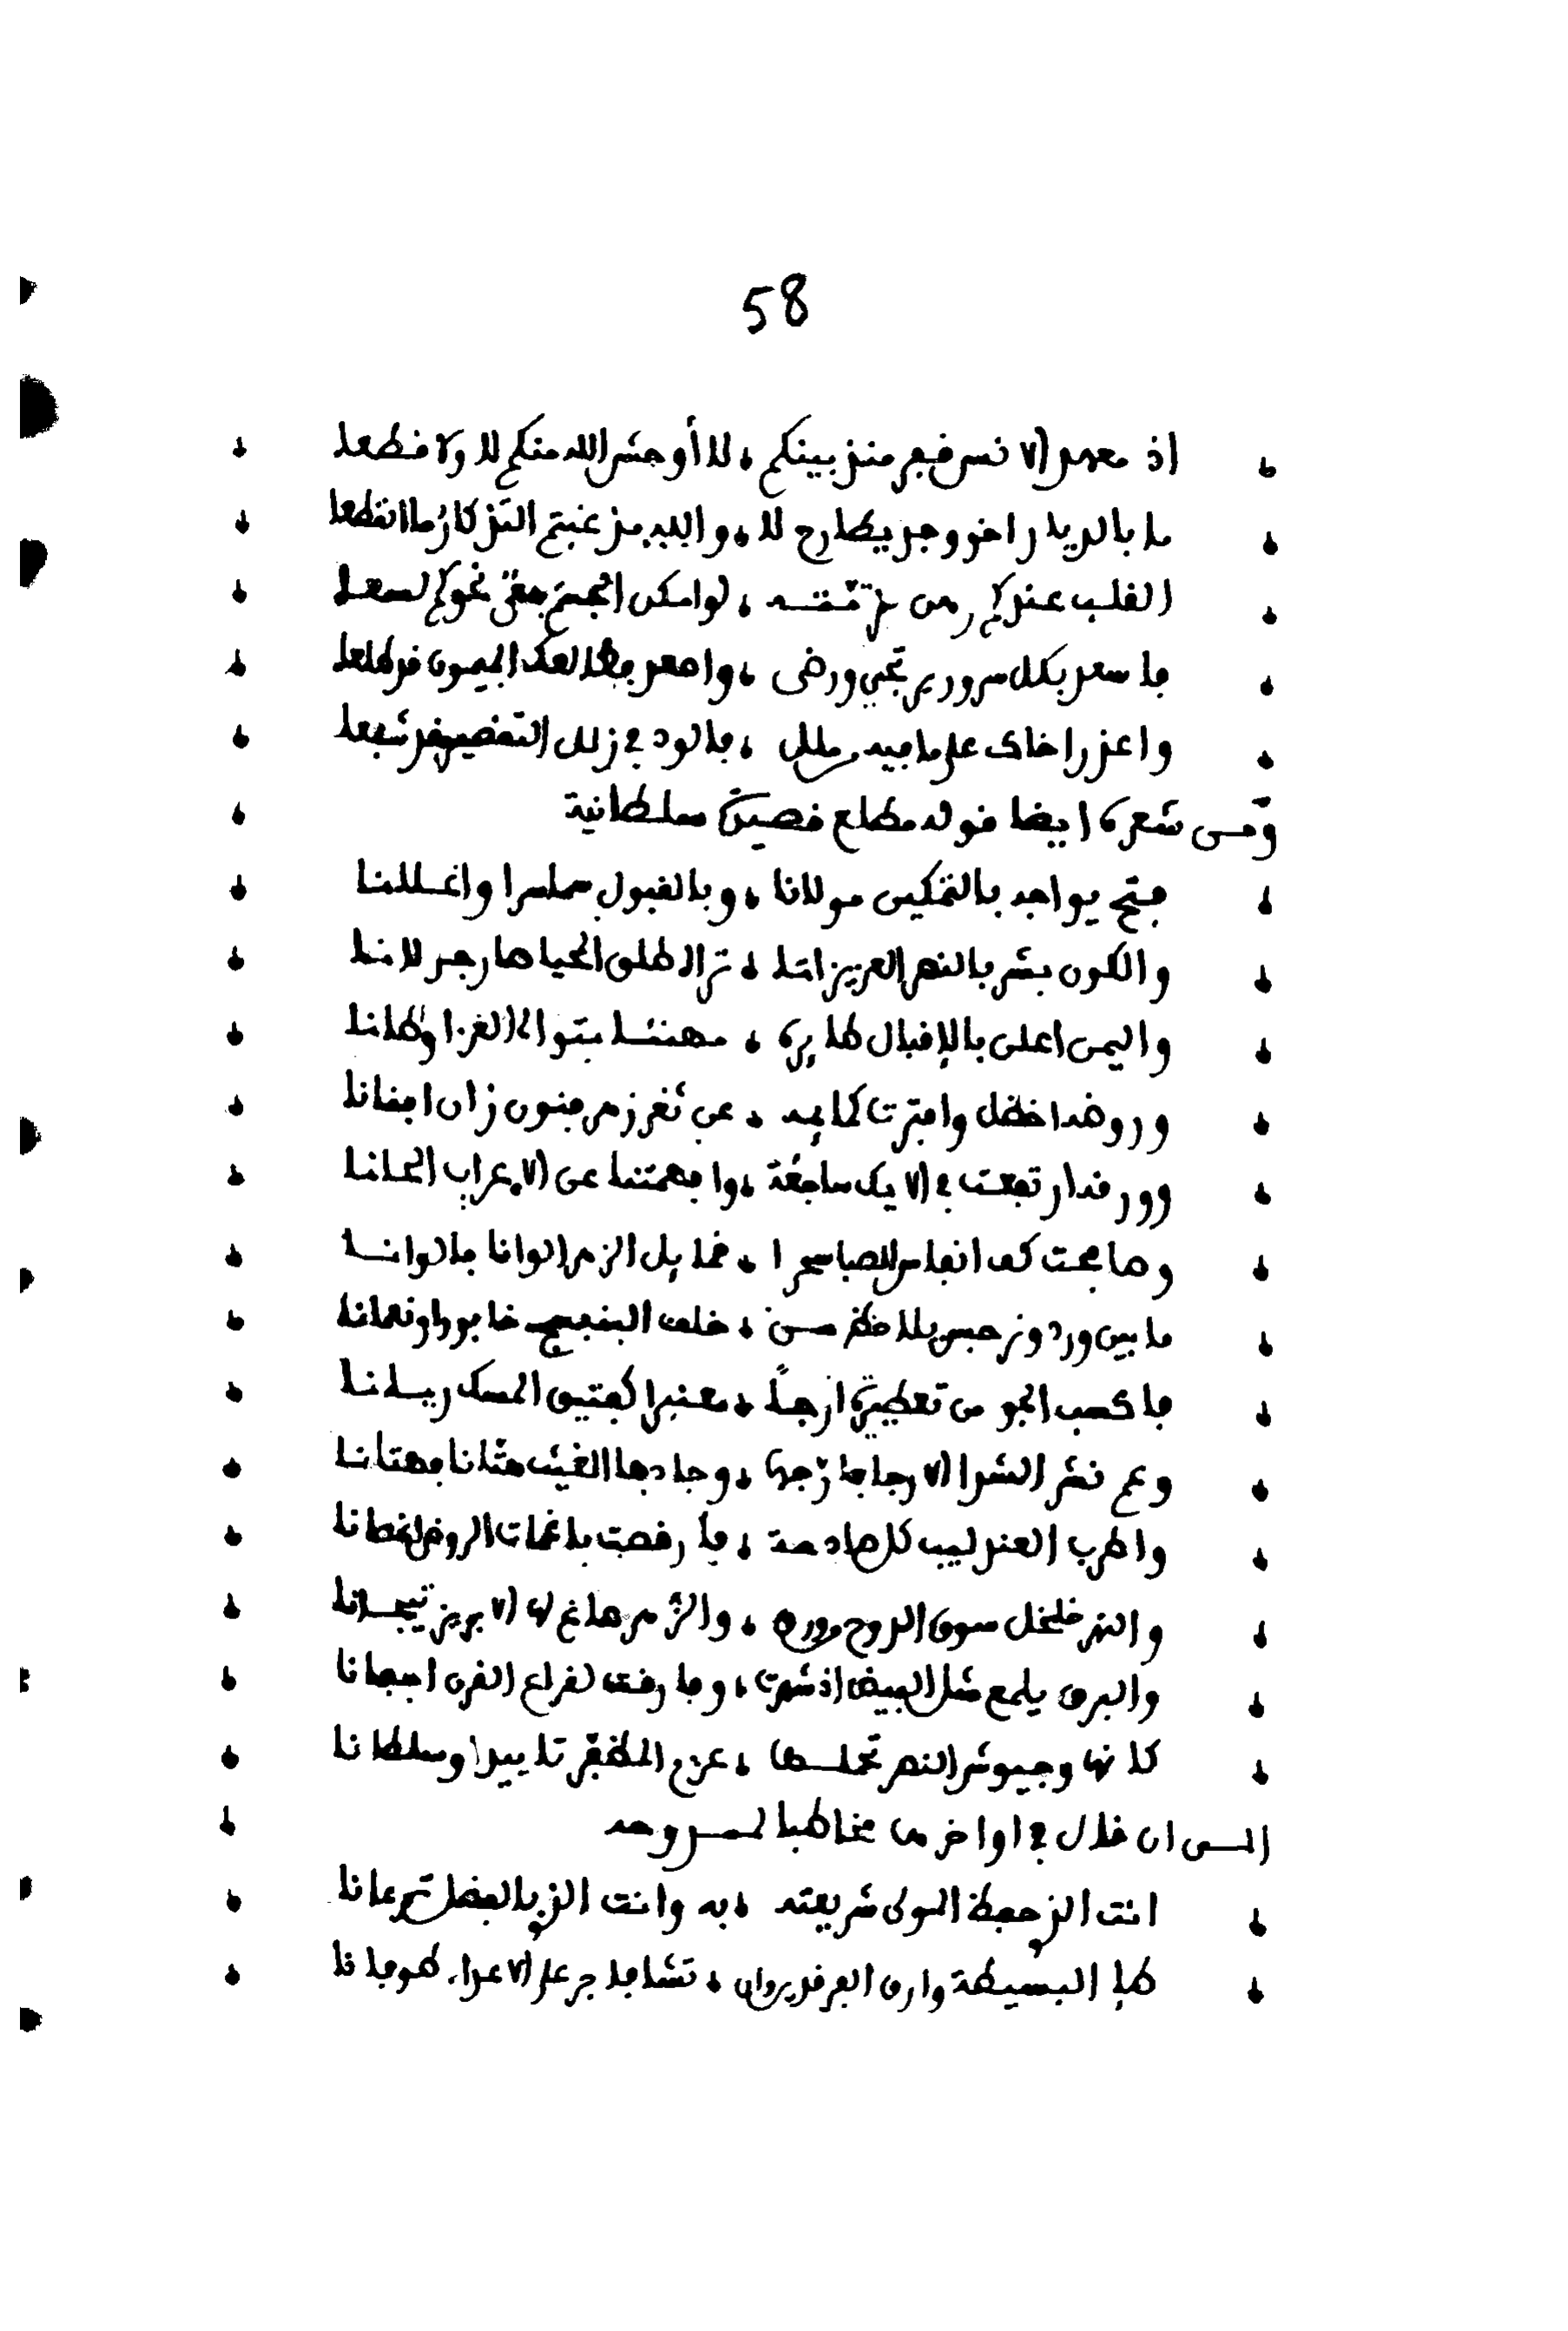 58
اذ معهد الانس فيم منذ بينكم لا أوحش الله منكم لا ولا قطعا
ما بال دياراخو وجد يطارح لا والله مذ غبتم التذكار ما انقطعا
القلب عندكم رهن لو امكن الجسم نحوكم لسعا
فاسعد بكل سرور يرتجى ورضى واسعد فطالعك الميمون قد طلعا
واعذر اخاك على ما فيه من فالود في زلل التقصير قد شفعا
ومن شعره ايضا قوله مطلع قصيدة سلطانية
فتح يوافيه بالتمكين مولانا وبالقبول سراسرا واعلانا
والكون بشر بالنصر العزيز اتا ترا طلق المحيا صار جدلانا
واليمن اعلى بالاقبال طايره مهنئا بتوالى الغز اوطانا
وروضه اخضل وافترت كمايمه عن ثغر زهر فنون زان افنانا
وورقه ارتفعت في الايك ساجعة وافهمتنا عن الاعراب الحانا
وصافحت كف انفاس الصبا سحرا خمايل الزهر الوانا فالوانا
ما بين ورد ونرجس يلاحظ من خلف البنفسج خابورا ونعمانا
فاكسب الجو من تعطيره ارجاً معنبرا كفتيق المسك ريانا
وعم نشر الشرا الارجا فارجها وجادها الغيث هتانا فهتانا
واطرب العندليب كل صادحة فارقصت باغمات الروض اغصانا
والنهر خلخل سوق الدوح والزهر صاغ لها الابريز تيجانا
والبرق يلمع مثل البيض اذ شهرت وفارقت لقراع القرن اجفانا
كانها وجيوش النصر تحملها عزم المظفر تاييدا وسلطانا
الى ان قال في اواخرها مخاطبا لممدوحه
انت الذي حفظ المولى شريعته به وانت الذي بالفضل ترعانا
طا البسيطة وارق